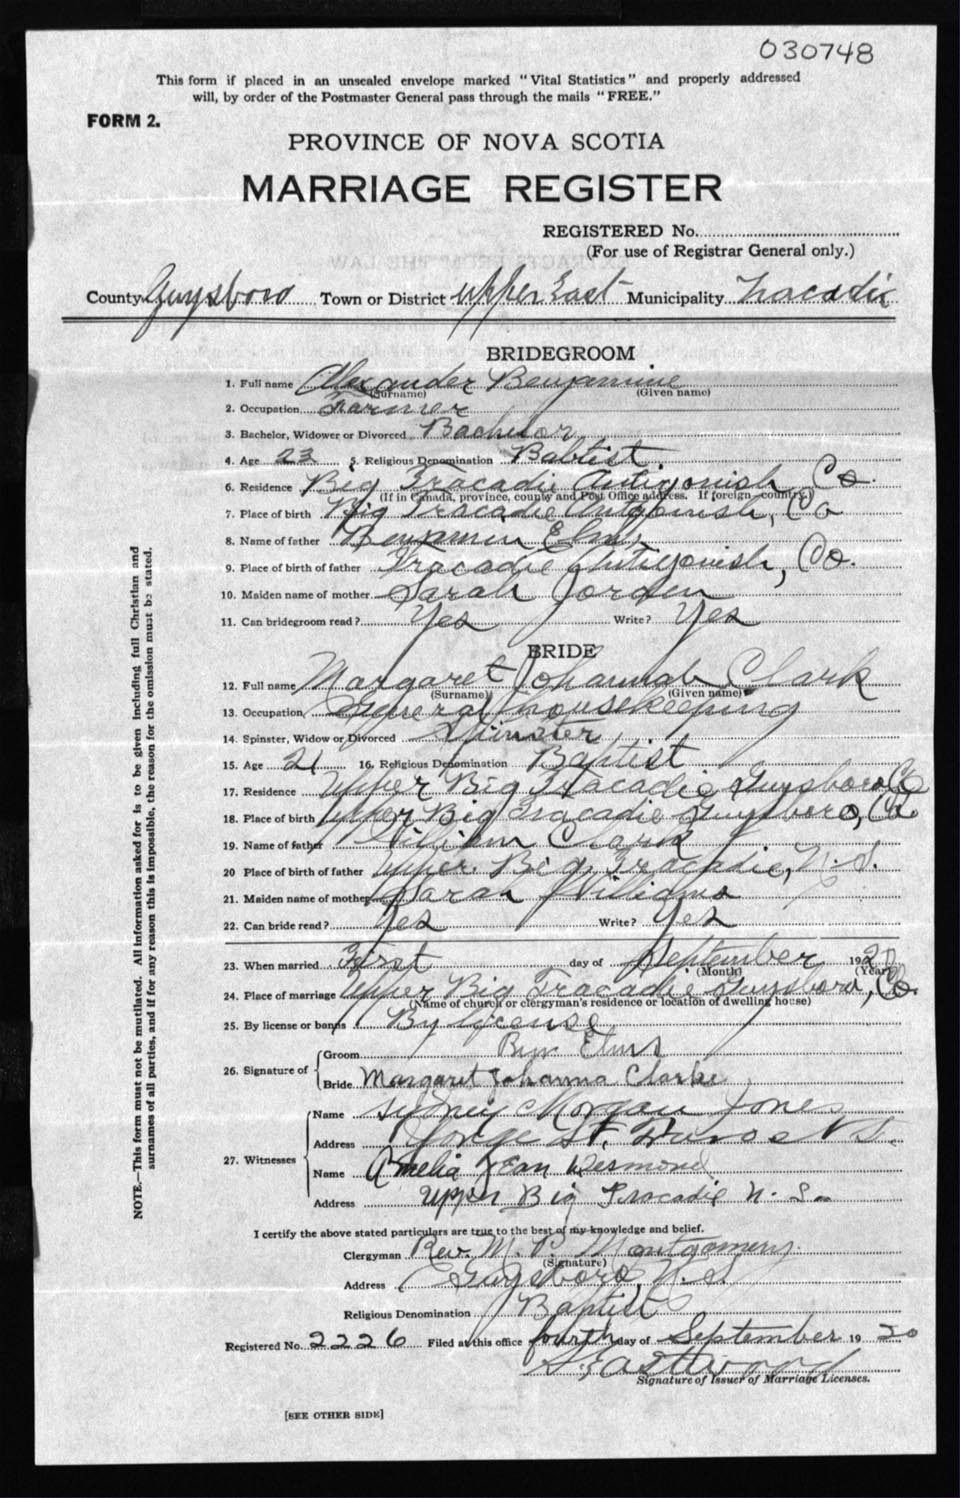 030748
This form if placed in an unsealed envelope marked "Vital Statistics" and properly addressed
will, by order of the Postmaster General pass through the mails "FREE."
FORM 2.
PROVINCE OF NOVA SCOTIA
MARRIAGE REGISTER
REGISTERED No.
(For use of Registrar General only.)
County Guysboro Town or District Upper East Municipality Tracadie
BRIDEGROOM
1. Full name Alexander Benjamine
(Surname) (Given name)
2. Occupation Farmer
3. Bachelor, Widower or Divorced Bachelor
4. Age 23 5. Religious Denomination Babtist
6. Residence Big Tracadie Antigonish Co.
(If in Canada, province, county and Post Office address. If foreign country.)
7. Place of birth Big Tracadie Antigonish, Co
8. Name of father Benjamin Elms
9. Place of birth of father Tracadie Antigonish, Co.
10. Maiden name of mother Sarah Jorden
11. Can bridegroom read? Yes Write? Yes
BRIDE
12. Full name Margaret Johannah Clark
(Surname) (Given name)
13. Occupation General housekeeping
14. Spinster, Widow or Divorced Spinster
15. Age 21 16. Religious Denomination Baptist
17. Residence Upper Big Tracadie Guysboro Co
18. Place of birth Upper Big Tracadie Guysboro, Co
19. Name of father William Clark
20 Place of birth of father Upper Big Tracadie, N. S.
21. Maiden name of mother Sarah Williams
22. Can bride read? Yes Write? Yes
23. When married First day of September 1920
(Month) (Year)
24. Place of marriage Upper Big Tracadie Guysboro, Co.
(Name of church or clergyman's residence or location of dwelling house)
25. By license or banns By license
26. Signature of
Groom Ben Elms
Bride Margaret Johanna Clarke
27. Witnesses
Name Sydney Morgan Jones
Address St. Truro N S.
Name Amelia Jean Desmond
Address Upper Big Tracadie N. S.
I certify the above stated particulars are true to the best of my knowledge and belief.
Clergyman Rev. M. P. Montgomery.
(Signature)
Address Guysboro, N. S
Religious Denomination Baptist
Registered No. 2226 Filed at this office fourth day of September 1920
S. Eastwood
Signature of Issuer of Marriage Licenses.
[SEE OTHER SIDE]
NOTE.—This form must not be mutilated. All information asked for is to be given including full Christian and
surnames of all parties, and if for any reason this is impossible, the reason for the omission must be stated.